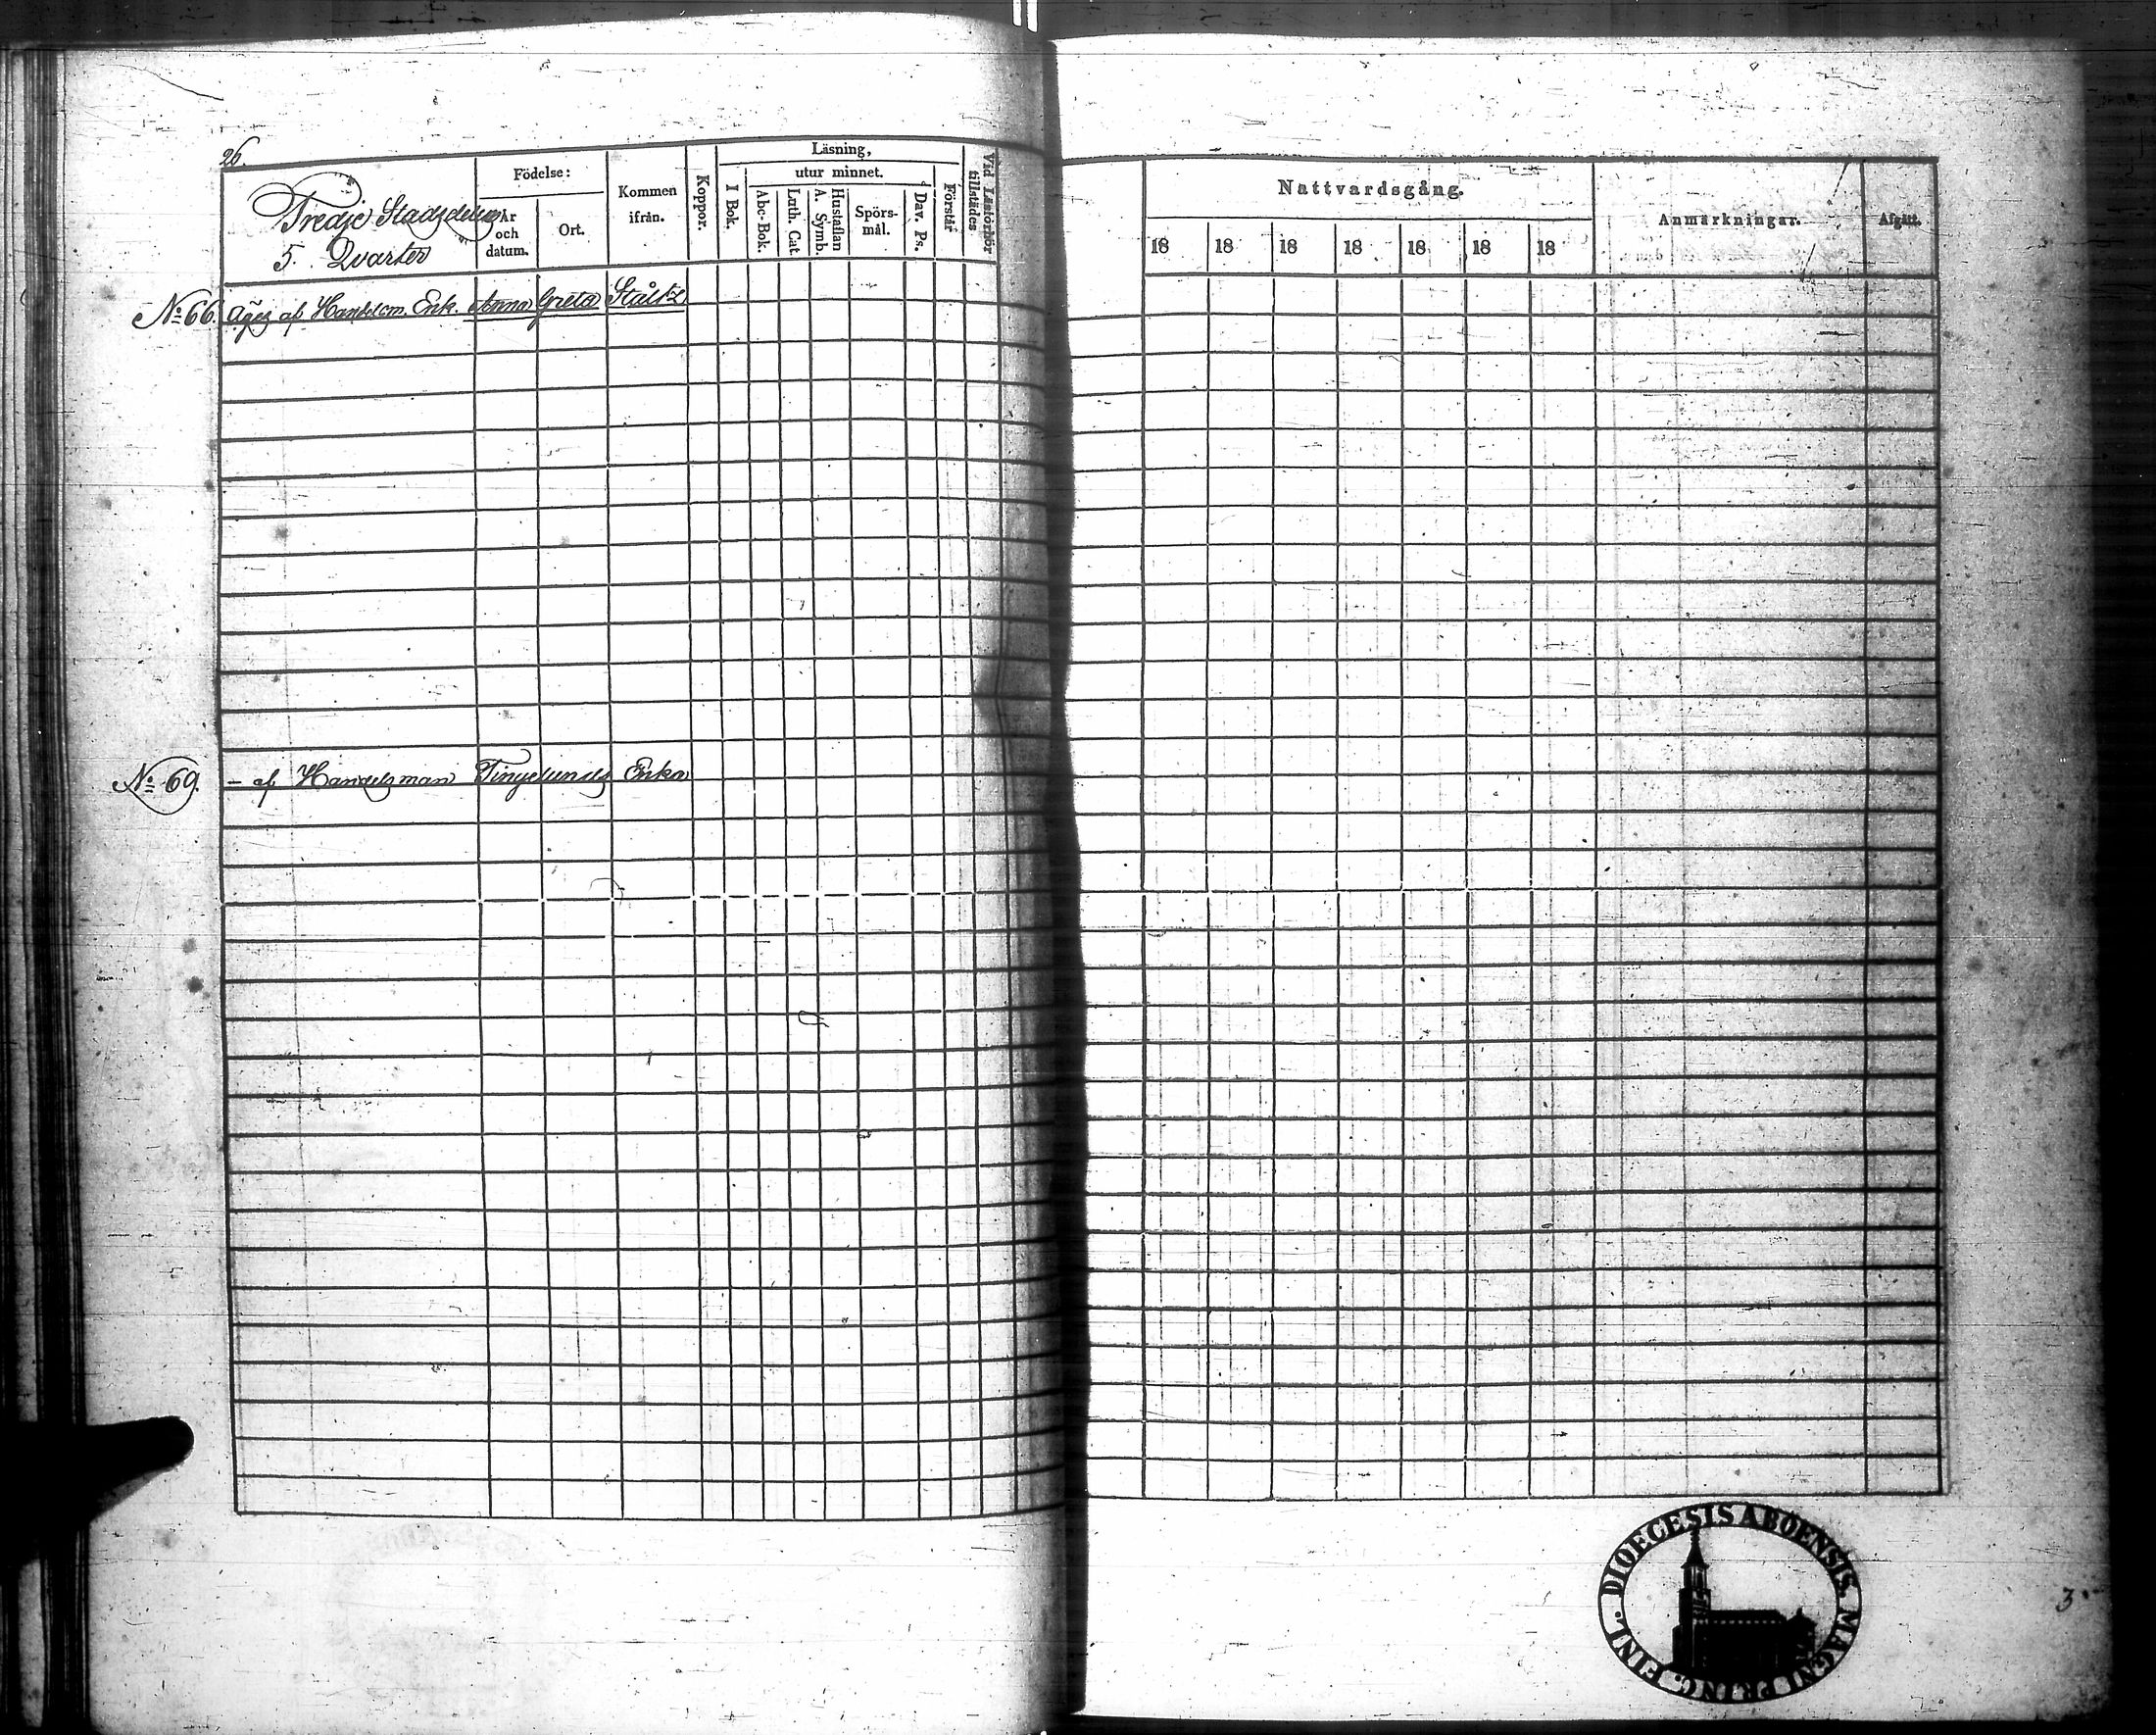 26.
Tredje Stadsdelen
5. Qvarter
Födelse:
År
och
datum.
Ort.
Kommen
ifrån.
Koppor.
Läsning,
I Bok.
utur minnet.
Abc-Bok.
Luth. Cat.
A. Symb.
Hustaflan
Spörs-
mål.
Dav. Ps.
Förstår
Vid Läsförhör
tillstädes
Nattvardsgång.
18 18 18 18 18 18 18
Anmärkningar.
Afgått.
No 66. Äges af Handelsm. Enk. Anna Greta Ståltz
No 69. - af Handelsman Tingelunds Enka
DIOECESIS ABOENSIS. MAGNI PRINC. FINL.
3